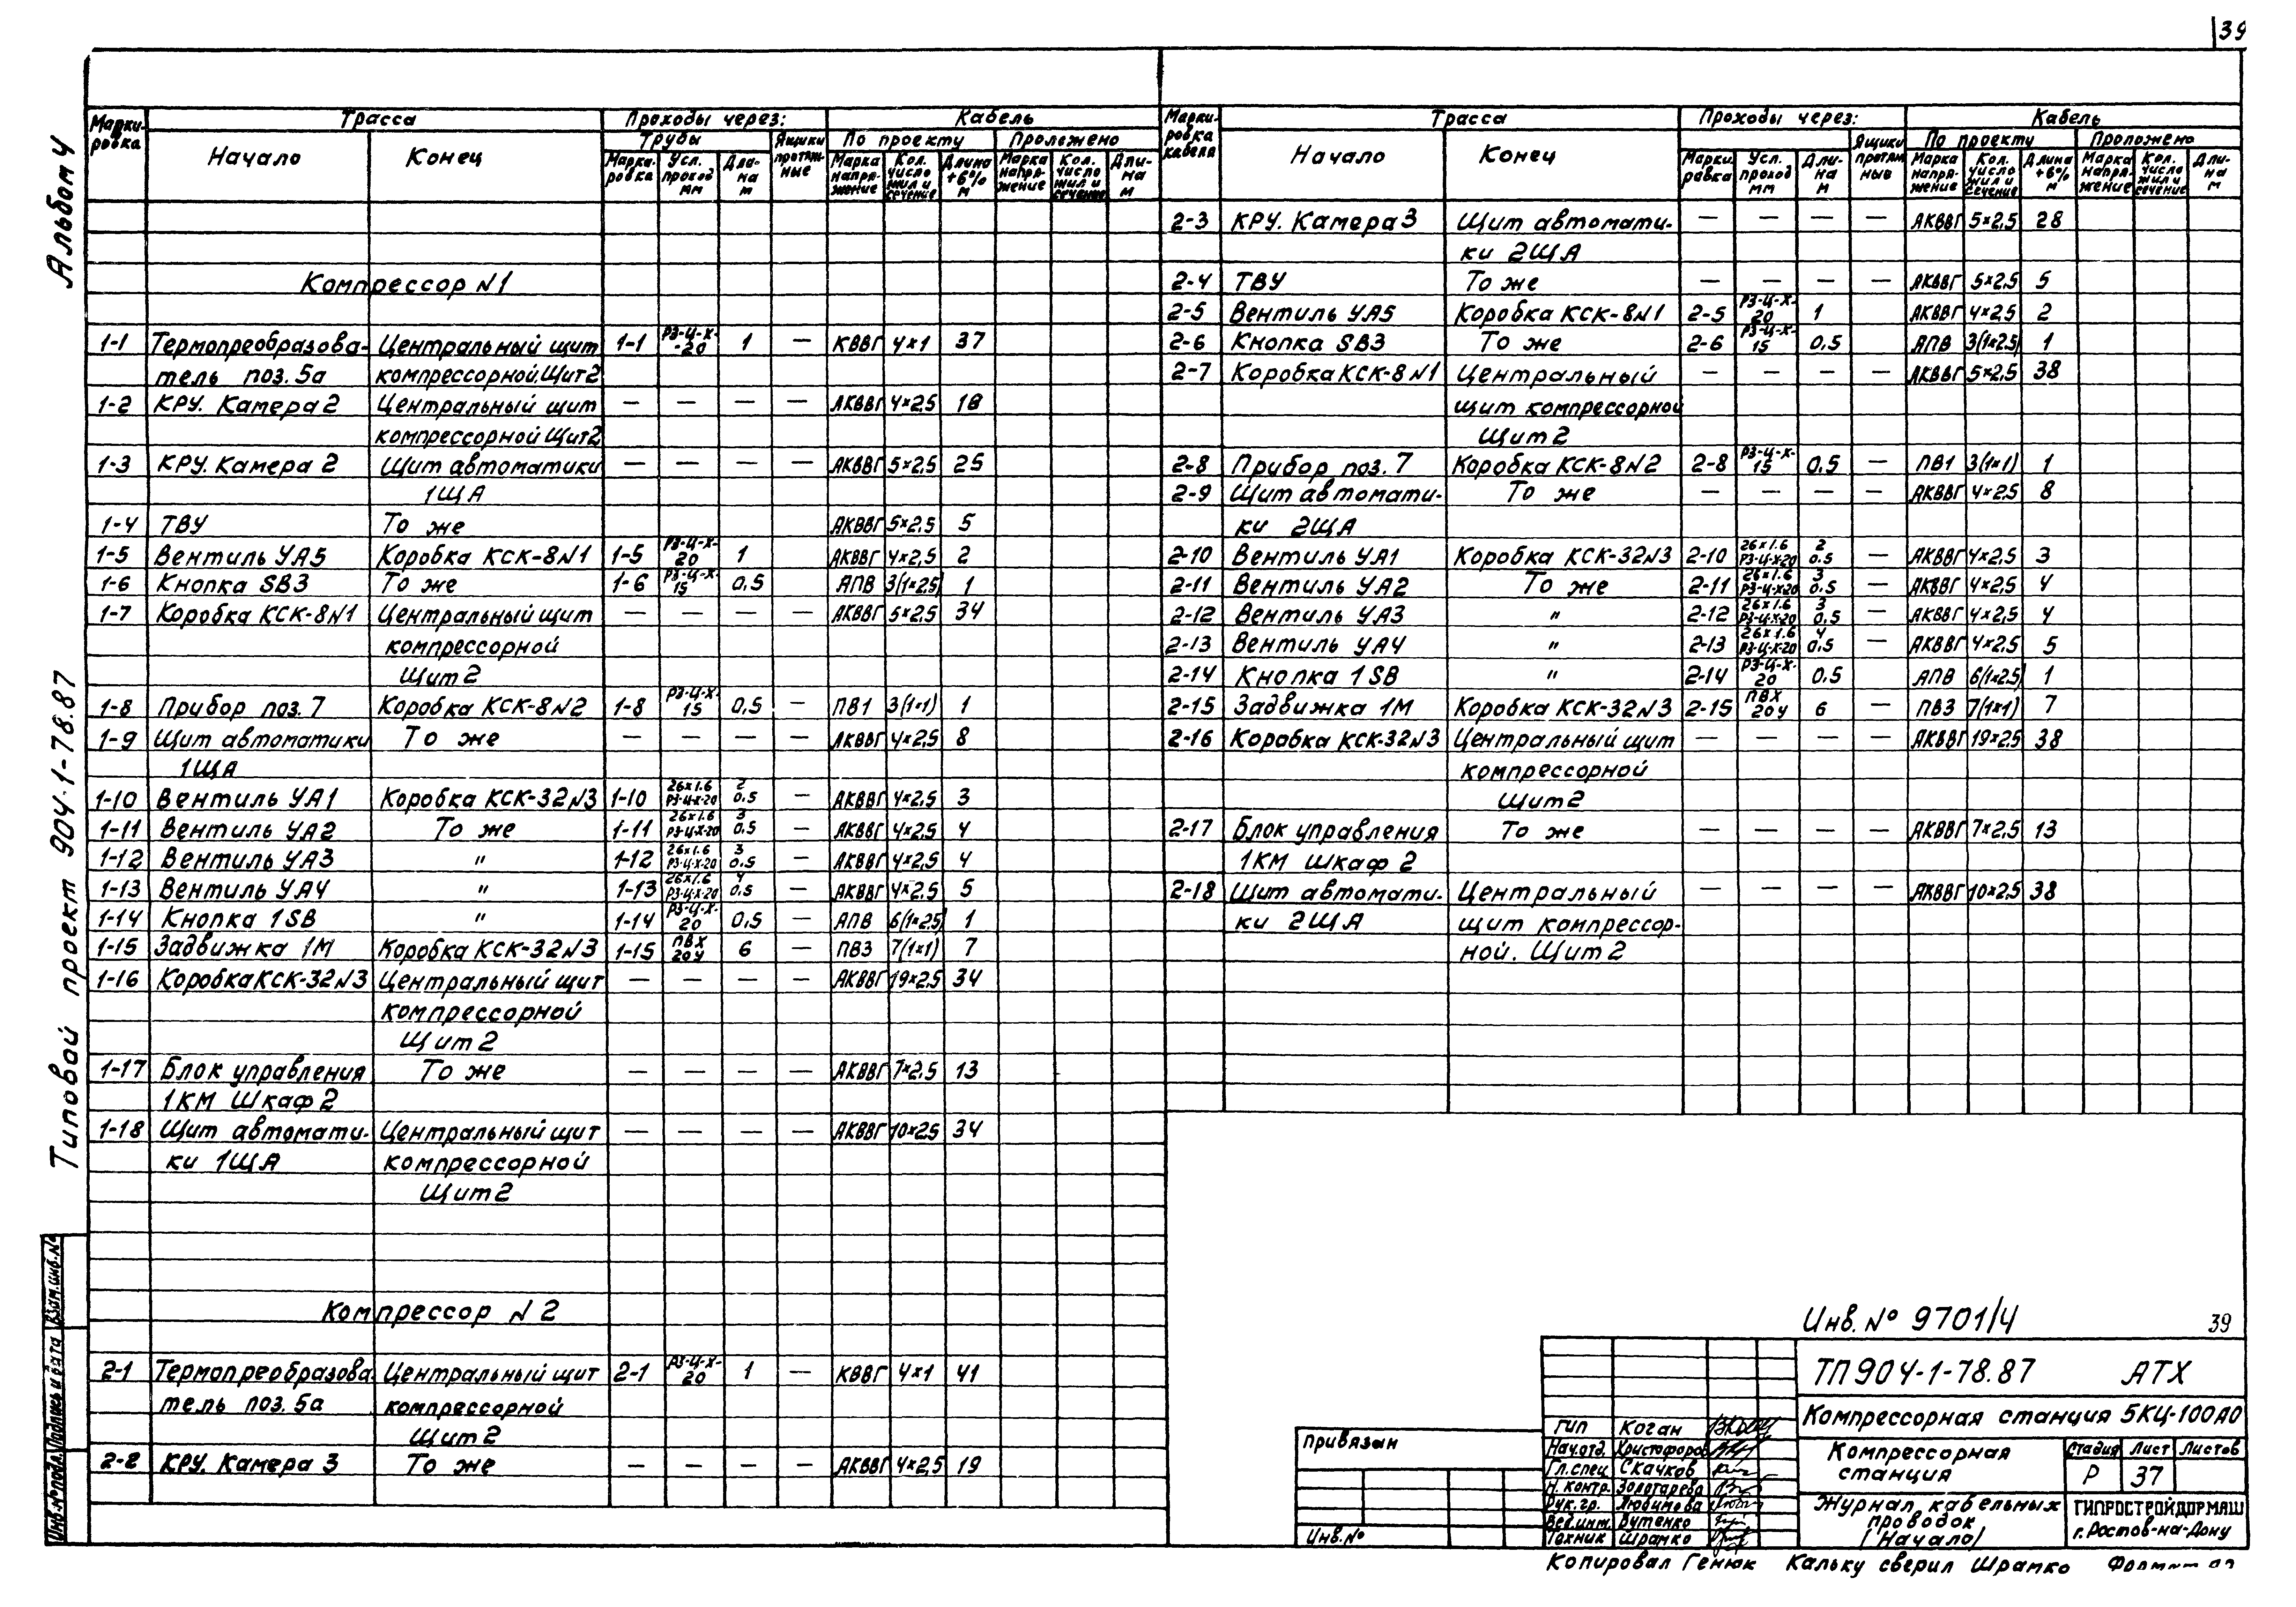 39
Альбом 4
Типовой проект 904-1-78.87
Марки-ровка | Трасса | Проходы через: | Кабель
Начало | Конец | Трубы | Ящики протяж-ные | По проекту | Проложено
Марки-ровка | Усл. проход мм | Дли-на м | Марка напря-жение | Кол. число жил и сечение | Длина +6% м | Марка напря-жение | Кол. число жил и сечение | Дли-на м
Компрессор N1
1-1 Термопреобразова- Центральный щит 1-1 РЗ-Ц-Х-20 1 — КВВГ 4×1 37
тель поз. 5а компрессорной. Щит 2
1-2 КРУ. Камера 2 Центральный щит — — — — АКВВГ 4×2,5 18
компрессорной Щит 2
1-3 КРУ. Камера 2 Щит автоматики — — — — АКВВГ 5×2,5 25
1ЩА
1-4 ТВУ То же АКВВГ 5×2,5 5
1-5 Вентиль УА5 Коробка КСК-8N1 1-5 РЗ-Ц-Х-20 1 АКВВГ 4×2,5 2
1-6 Кнопка SB3 То же 1-6 РЗ-Ц-Х-15 0,5 АПВ 3(1×2,5) 1
1-7 Коробка КСК-8N1 Центральный щит — — — — АКВВГ 5×2,5 34
компрессорной
Щит 2
1-8 Прибор поз. 7 Коробка КСК-8N2 1-8 РЗ-Ц-Х-15 0,5 — ПВ1 3(1×1) 1
1-9 Щит автоматики То же — — — — АКВВГ 4×2,5 8
1ЩА
1-10 Вентиль УА1 Коробка КСК-32N3 1-10 26×1.6 РЗ-Ц-Х-20 2 0.5 — АКВВГ 4×2,5 3
1-11 Вентиль УА2 То же 1-11 26×1.6 РЗ-Ц-Х-20 3 0.5 — АКВВГ 4×2,5 4
1-12 Вентиль УА3 " 1-12 26×1.6 РЗ-Ц-Х-20 3 0.5 — АКВВГ 4×2,5 4
1-13 Вентиль УА4 " 1-13 26×1.6 РЗ-Ц-Х-20 4 0.5 — АКВВГ 4×2,5 5
1-14 Кнопка 1SB " 1-14 РЗ-Ц-Х-20 0,5 — АПВ 6(1×2,5) 1
1-15 Задвижка 1М Коробка КСК-32N3 1-15 ПВХ 20У 6 — ПВ3 7(1×1) 7
1-16 Коробка КСК-32N3 Центральный щит — — — — АКВВГ 19×2,5 34
компрессорной
Щит 2
1-17 Блок управления То же — — — — АКВВГ 7×2,5 13
1КМ Шкаф 2
1-18 Щит автомати- Центральный щит — — — — АКВВГ 10×2,5 34
ки 1ЩА компрессорной
Щит 2
Компрессор N 2
2-1 Термопреобразова- Центральный щит 2-1 РЗ-Ц-Х-20 1 — КВВГ 4×1 41
тель поз. 5а компрессорной
Щит 2
2-2 КРУ. Камера 3 То же — — — — АКВВГ 4×2,5 19
Марки-ровка кабеля | Трасса | Проходы через: | Кабель
Начало | Конец | Ящики протяж-ные | По проекту | Проложено
Марки-ровка | Усл. проход мм | Дли-на м | Марка напря-жение | Кол. число жил и сечение | Длина +6% м | Марка напря-жение | Кол. число жил и сечение | Дли-на м
2-3 КРУ. Камера 3 Щит автомати- — — — — АКВВГ 5×2,5 28
ки 2ЩА
2-4 ТВУ То же — — — — АКВВГ 5×2,5 5
2-5 Вентиль УА5 Коробка КСК-8N1 2-5 РЗ-Ц-Х-20 1 АКВВГ 4×2,5 2
2-6 Кнопка SB3 То же 2-6 РЗ-Ц-Х-15 0,5 АПВ 3(1×2,5) 1
2-7 Коробка КСК-8N1 Центральный — — — — АКВВГ 5×2,5 38
щит компрессорной
Щит 2
2-8 Прибор поз. 7 Коробка КСК-8N2 2-8 РЗ-Ц-Х-15 0,5 — ПВ1 3(1×1) 1
2-9 Щит автомати- То же — — — — АКВВГ 4×2,5 8
ки 2ЩА
2-10 Вентиль УА1 Коробка КСК-32N3 2-10 26×1.6 РЗ-Ц-Х-20 2 0.5 — АКВВГ 4×2,5 3
2-11 Вентиль УА2 То же 2-11 26×1.6 РЗ-Ц-Х-20 3 0.5 — АКВВГ 4×2,5 4
2-12 Вентиль УА3 " 2-12 26×1.6 РЗ-Ц-Х-20 3 0.5 — АКВВГ 4×2,5 4
2-13 Вентиль УА4 " 2-13 26×1.6 РЗ-Ц-Х-20 4 0.5 — АКВВГ 4×2,5 5
2-14 Кнопка 1SB " 2-14 РЗ-Ц-Х-20 0,5 АПВ 6(1×2,5) 1
2-15 Задвижка 1М Коробка КСК-32N3 2-15 ПВХ 20У 6 — ПВ3 7(1×1) 7
2-16 Коробка КСК-32N3 Центральный щит — — — — АКВВГ 19×2,5 38
компрессорной
Щит 2
2-17 Блок управления То же — — — — АКВВГ 7×2,5 13
1КМ Шкаф 2
2-18 Щит автомати- Центральный — — — — АКВВГ 10×2,5 38
ки 2ЩА щит компрессор-
ной. Щит 2
Инв. № 9701/4 39
ТП 904-1-78.87 АТХ
Компрессорная станция 5КЦ-100А0
Компрессорная станция
Стадия Лист Листов
Р 37
Журнал кабельных проводок (Начало)
ГИПРОСТРОЙДОРМАШ
г. Ростов-на-Дону
ГИП Коган
Нач.отд. Христофоров
Гл.спец Скачков
Н. контр. Золотарева
Рук. гр. Любимова
Вед.инж. Бутенко
Техник Шрамко
Привязан
Инв.№
Инв.№ подл. Подпись и дата Взам.инв.№
Копировал Генюк Кальку сверил Шрамко Формат